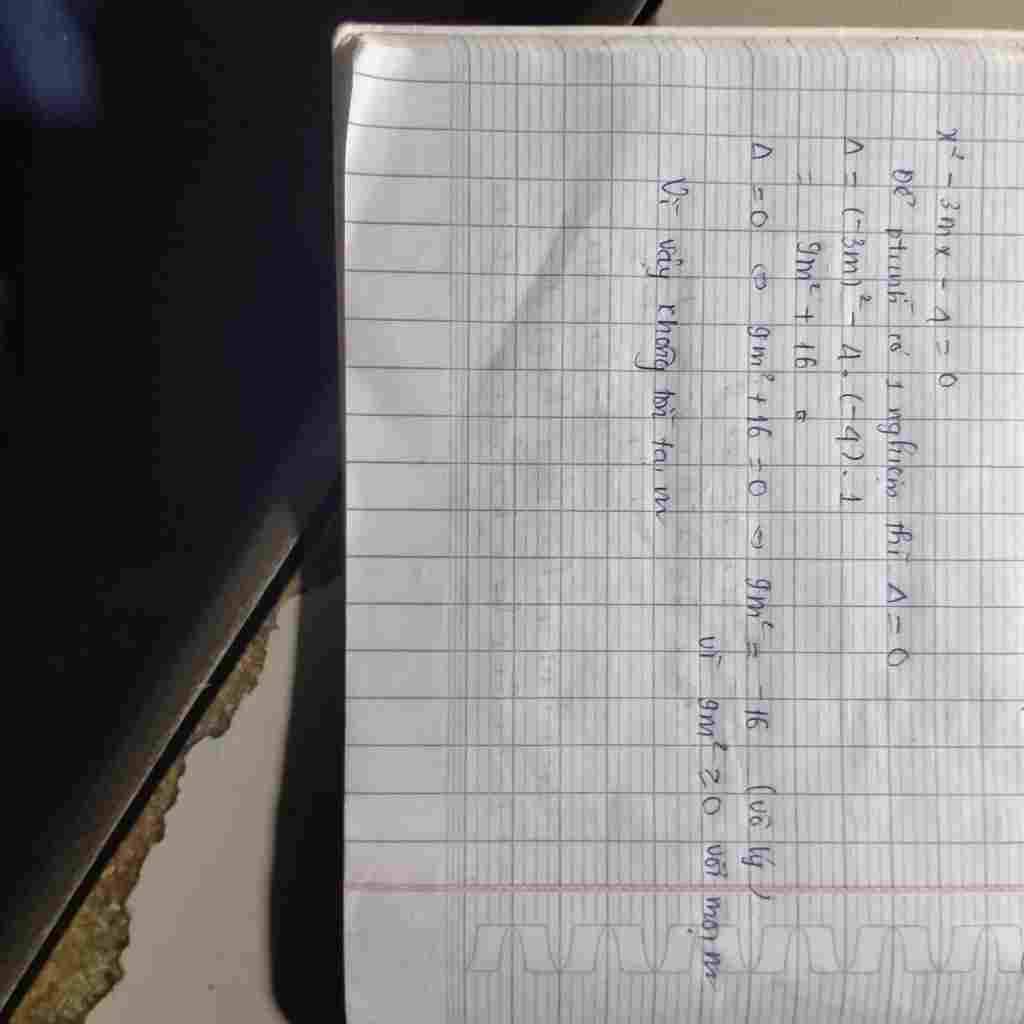 x² - 3mx - 4 = 0
Để ptrình có 1 nghiệm thì Δ = 0
Δ = (-3m)² - 4.(-4).1
= 9m² + 16
Δ = 0 ⇔ 9m² + 16 = 0 ⇔ 9m² = -16 (vô lý)
vì 9m² ≥ 0 với mọi m
Vì vậy không tồn tại m